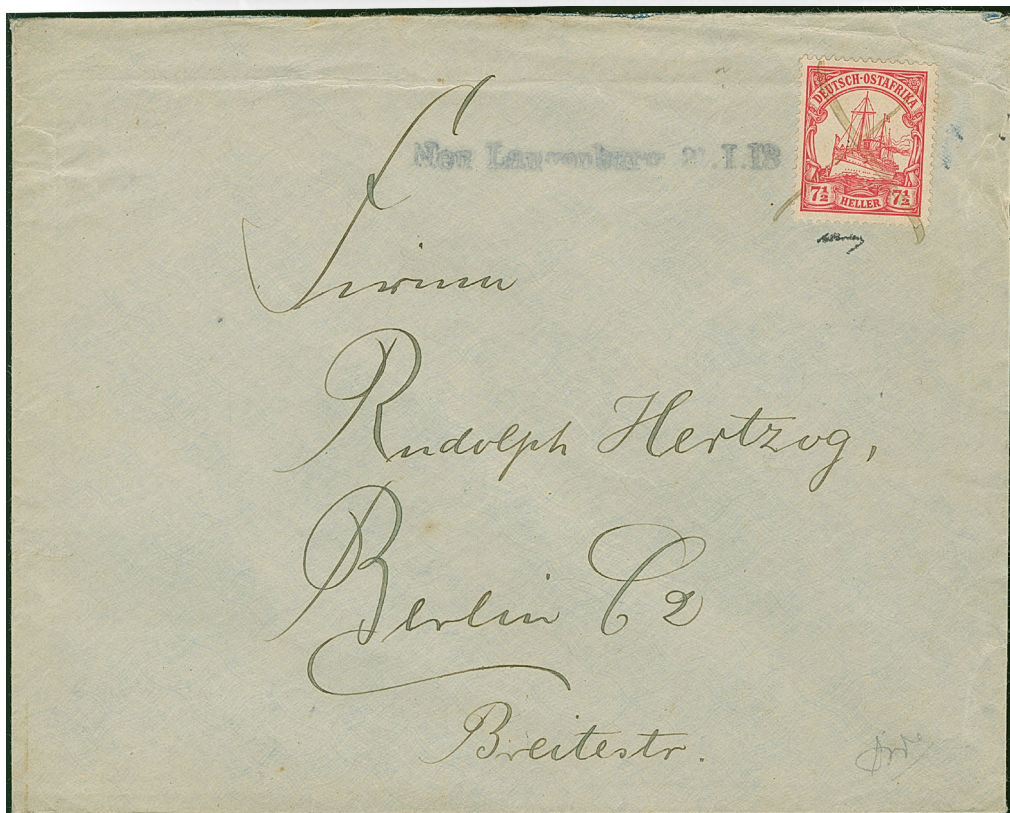 Neu Langenburg I.13
DEUTSCH-OSTAFRIKA
7½ HELLER 7½
Firma
Rudolph Hertzog,
Berlin C2
Breitestr.